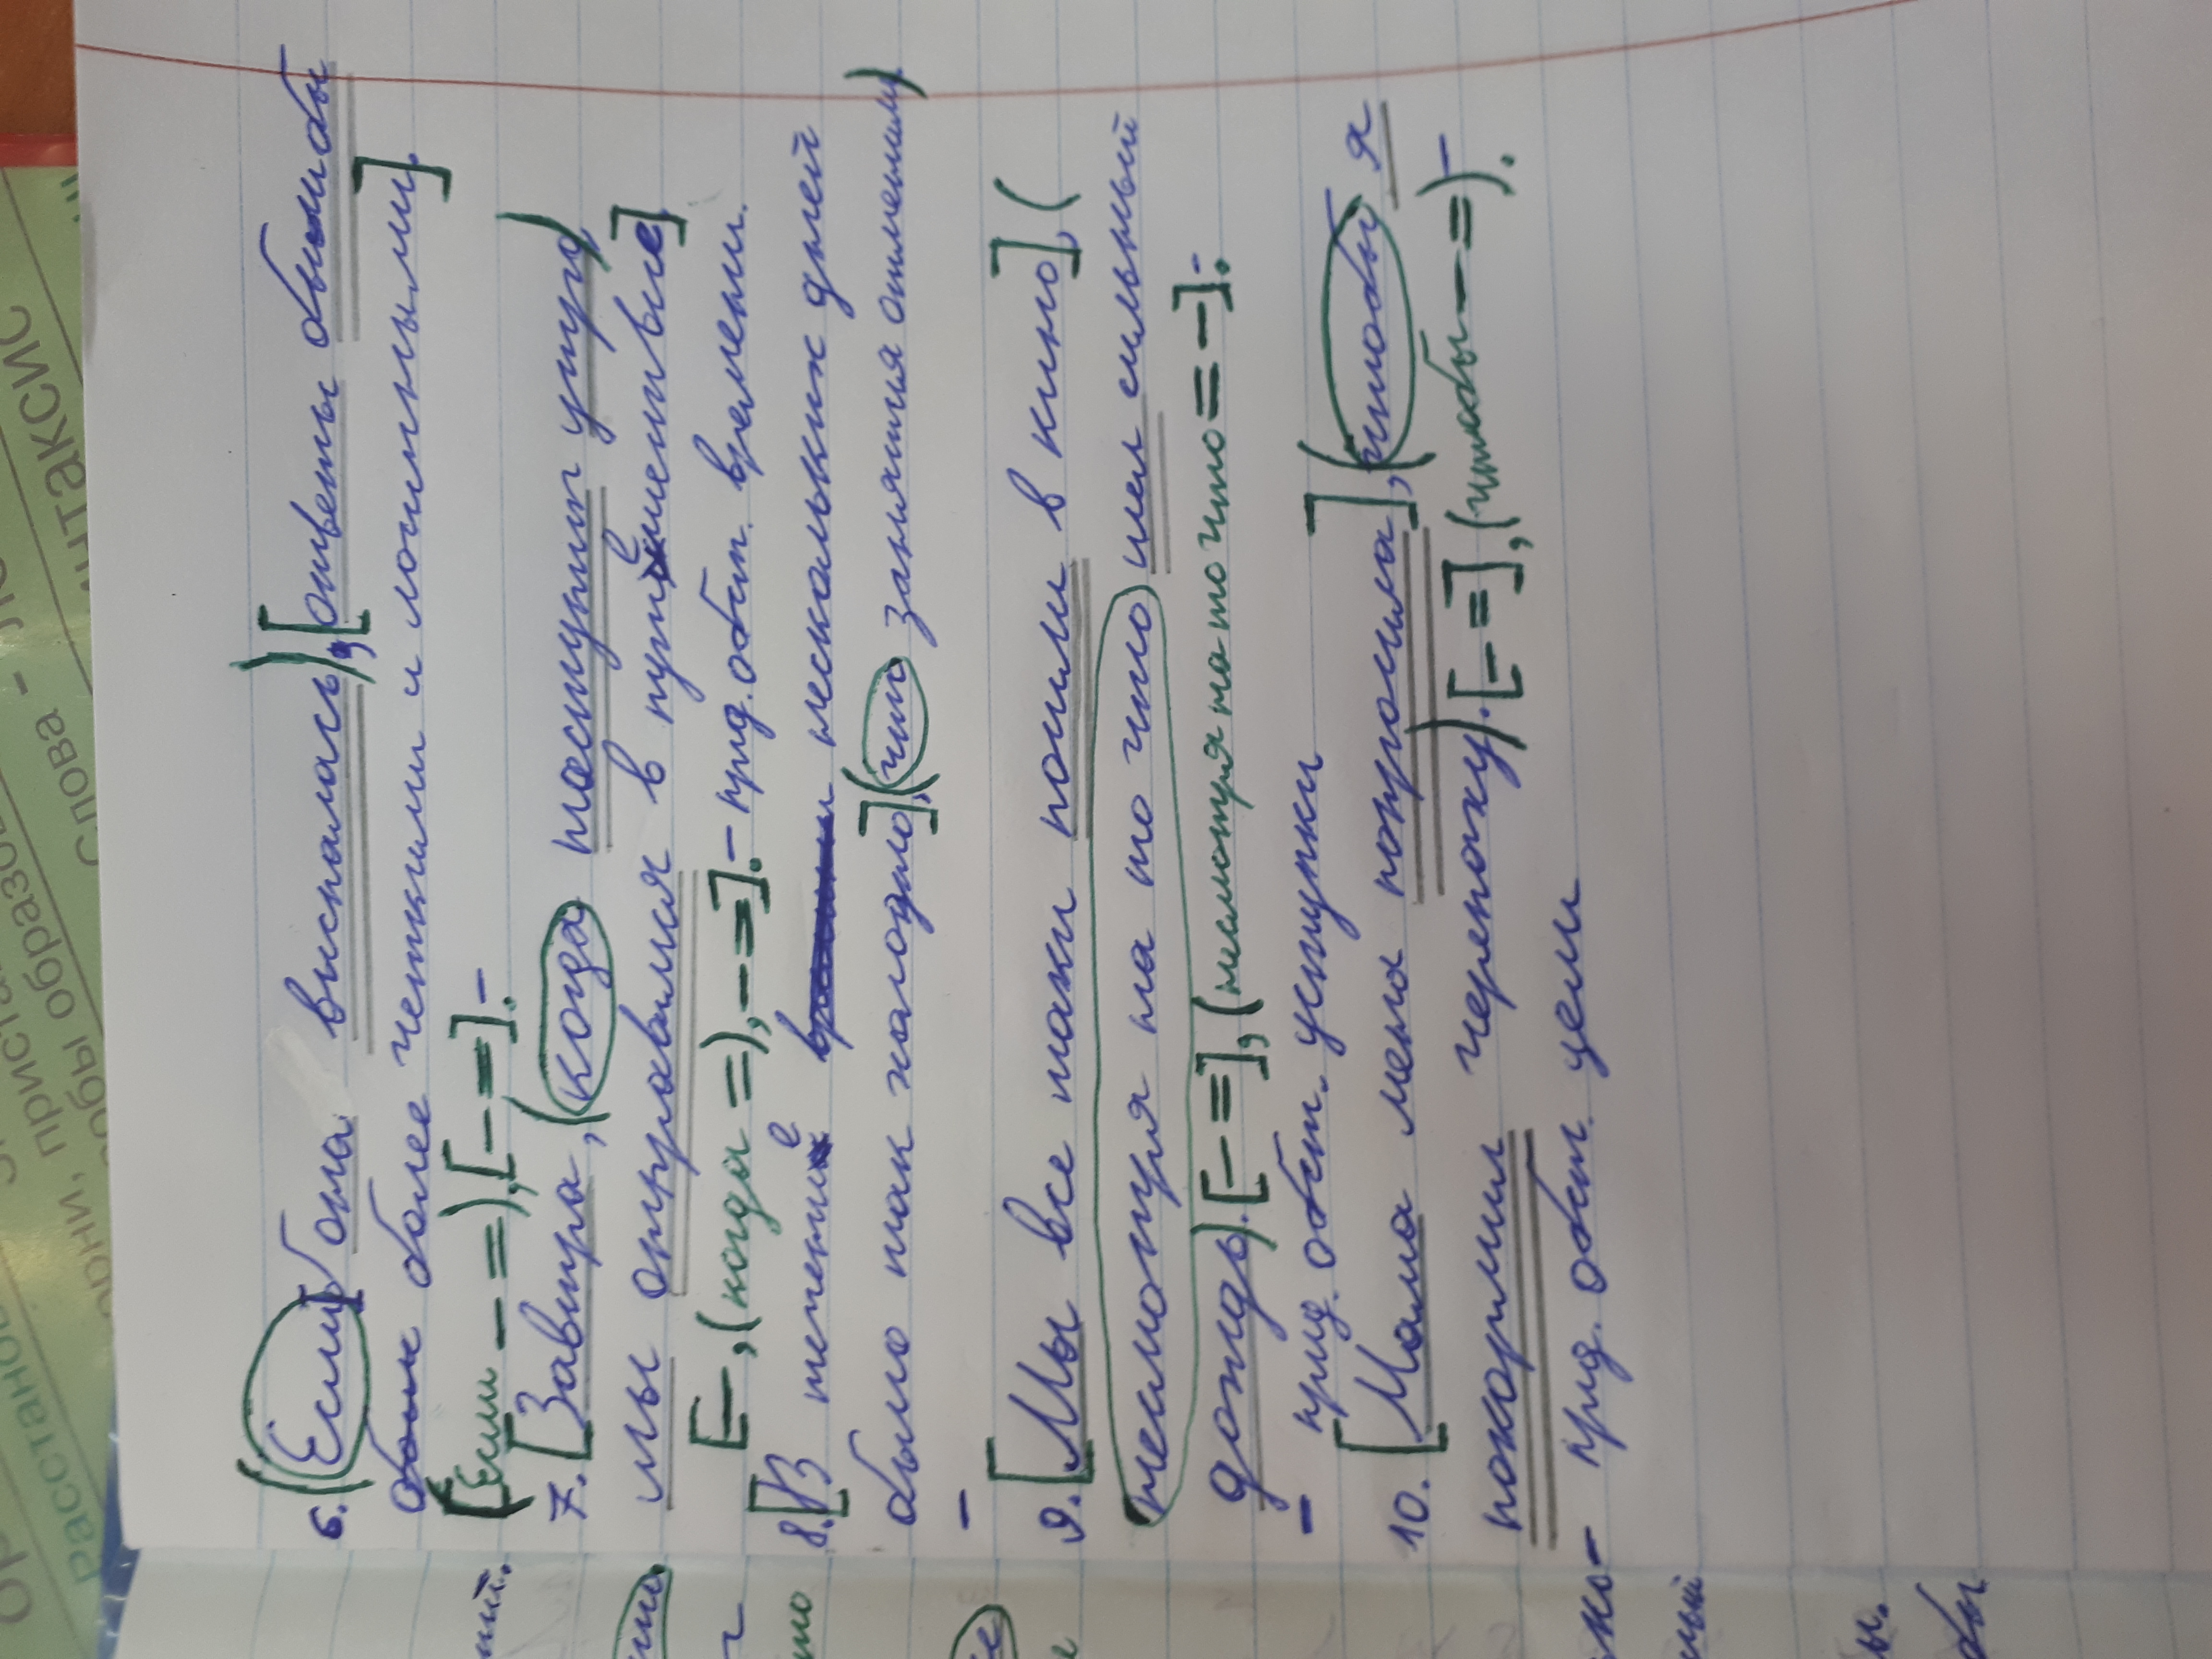 6. (Если б она выспалась), [ответы были бы
более четкими и логичными].
(Если – =), [– =]. –
7. [Завтра, (когда наступит утро)
мы отправимся в путешествие]
[–, (когда = –), – =]. – прид. обст. времени.
8. [В течение нескольких дней
было так холодно], (что занятия отменили)
–
9. [Мы все таки пошли в кино], (
несмотря на то что шел сильный
дождь). [– =], (несмотря на то что = –). –
– прид. обст. уступки
10. [Мама меня попросила], (чтобы я
покормил черепаху). [– =], (чтобы – =). –
– прид. обст. цели
СИНТАКСИС
слова -